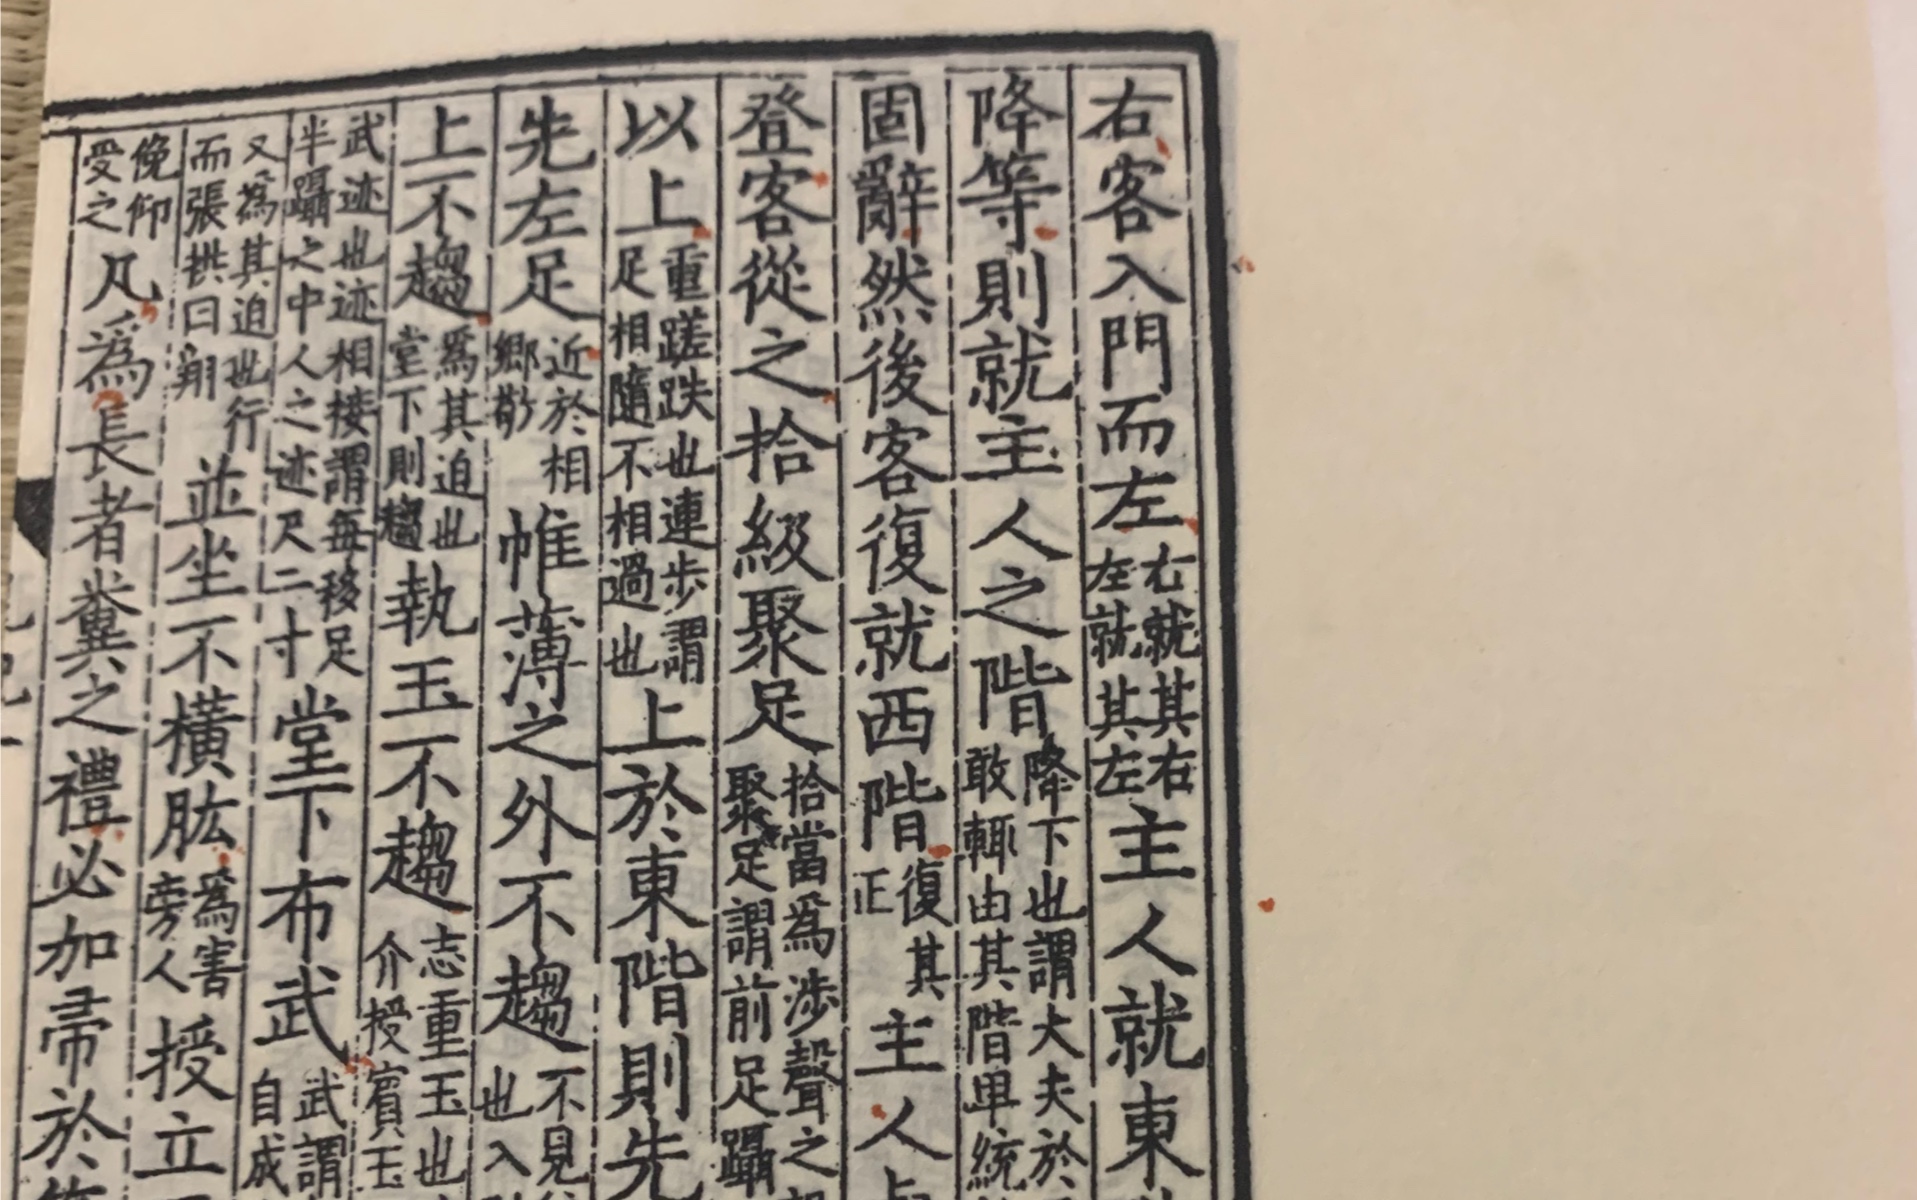 右客入門而左右就其右左就其左主人就東
降等則就主人之階降下也謂大夫於敢輒由其階卑統
固辭然後客復就西階復其正主人
登客從之拾級聚足拾當為涉聲之聚足謂前足躡
以上重蹉跌也連步謂足相隨不相過也上於東階則先
先左足近於相鄉敬帷薄之外不趨不見也入
上不趨為其迫也堂下則趨執玉不趨志重玉也介授賓玉
武迹也迹相接謂每移足半躡之中人之迹尺二寸堂下布武武謂自成
又為其迫也行而張拱曰翔並坐不橫肱為害旁人授立
俛仰受之凡為長者糞之禮必加帚於